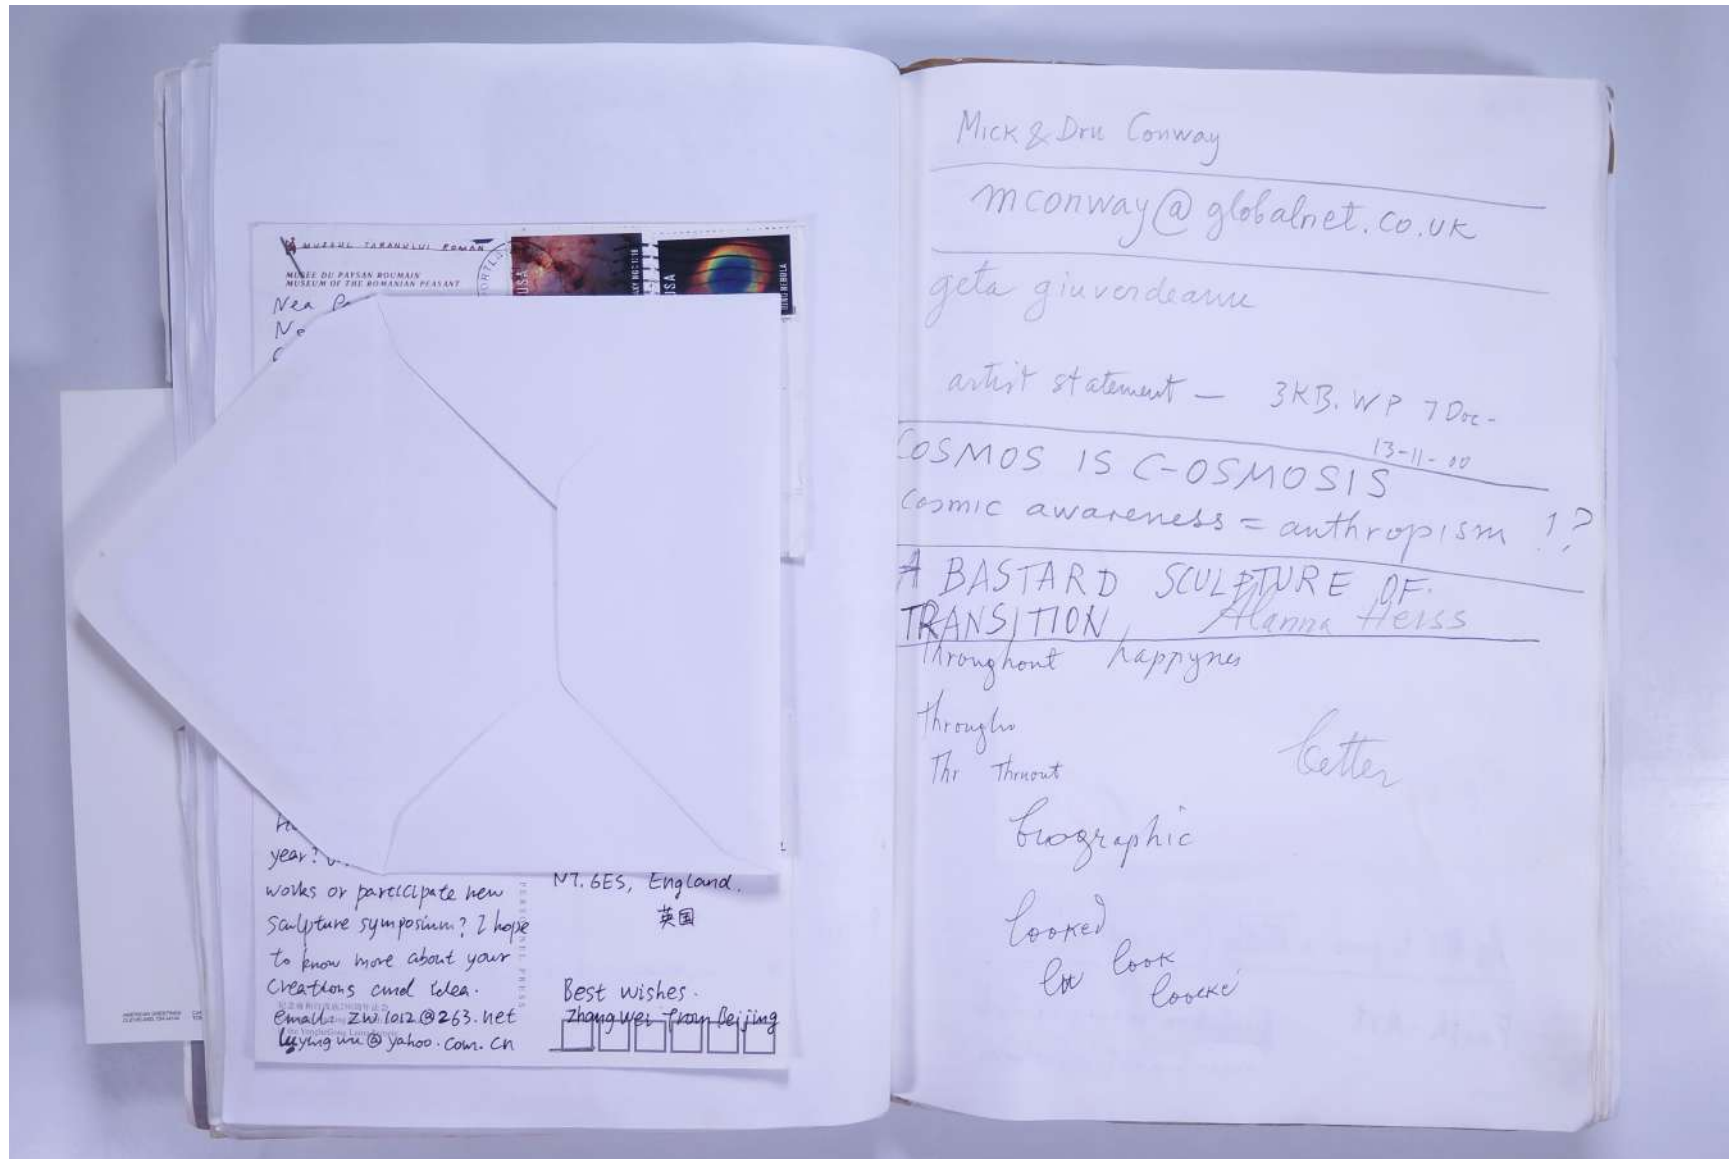 MUZEUL ȚĂRANULUI ROMÂN
MUSÉE DU PAYSAN ROUMAIN
MUSEUM OF THE ROMANIAN PEASANT
USA
USA
Nea
year?
works or participate new
sculpture symposium? I hope
to know more about your
creations and idea.
email: zw1012@263.net
luyingwu@yahoo.com.cn
PERSONNEL PRESS
N7.6ES, England.
英国
Best wishes.
Zhang Wei from Beijing
AMERICAN GREETINGS
Mick & Dru Conway
mconway@globalnet.co.uk
geta giuverdeanu
artist statement — 3KB. WP 7 Doc-
13-11-00
COSMOS IS C-OSMOSIS
Cosmic awareness = anthropism !?
A BASTARD SCULPTURE OF
TRANSITION Alanna Heiss
Throughout happynes
througho
Thr Thruout
better
biographic
looked
look